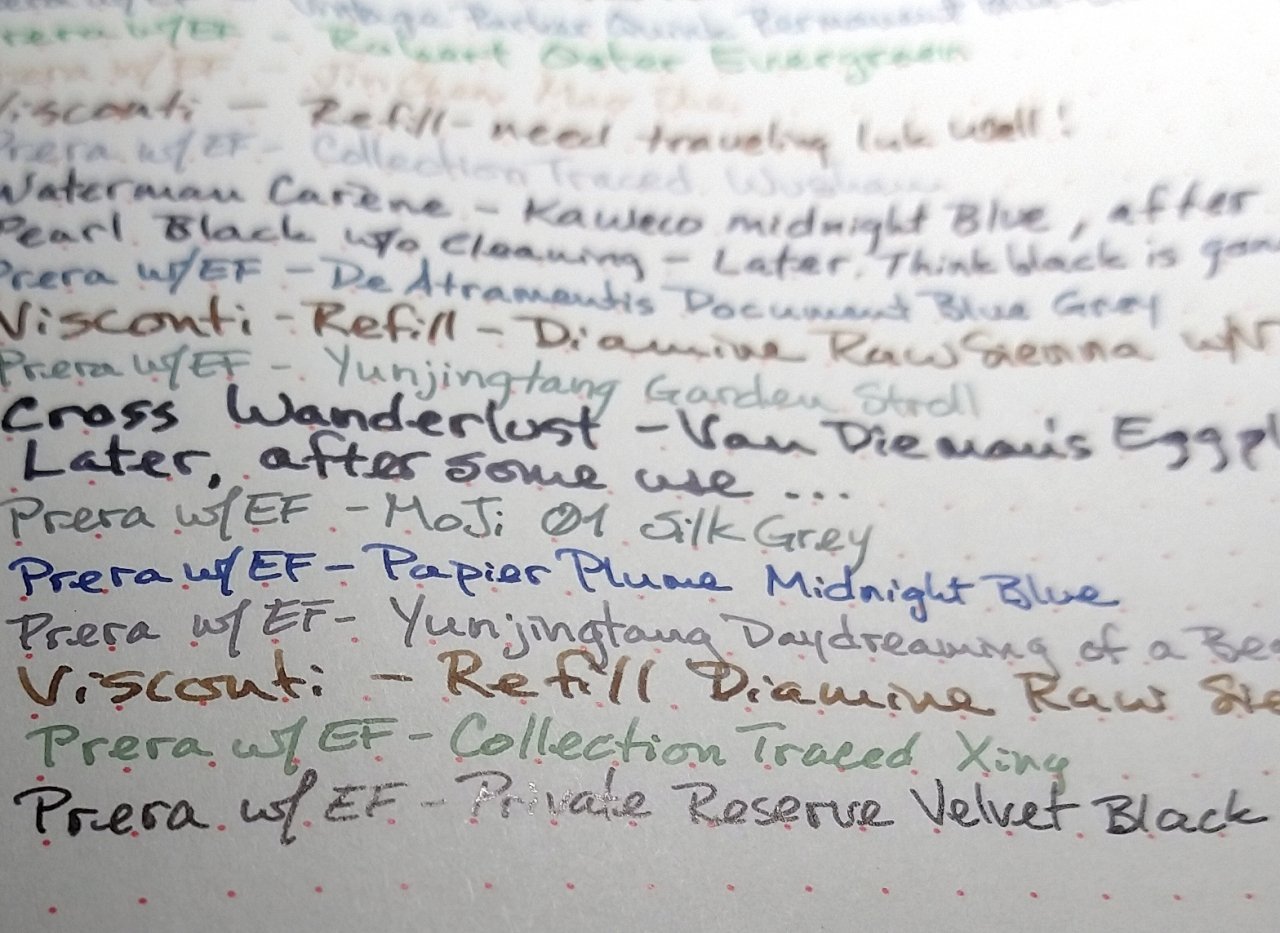 Parker Quink Permanent
Prera w/EF - Rohrer
Prera w/EF -
Visconti - Refill - need traveling ink well!
Prera w/EF - Collection Traced
Waterman Carène - Kaweco midnight Blue, after
Pearl Black w/o cleaning - Later. Think black is gon
Prera w/EF - De Atramentis Document Blue Grey
Visconti - Refill - Diamine Raw Sienna w/
Prera w/EF - Yunjingtang Garden Stroll
Cross Wanderlust - Van Dieman's Eggpl
Later, after some use ...
Prera w/EF - MoJi 01 Silk Grey
Prera w/EF - Papier Plume Midnight Blue
Prera w/EF - Yunjingtang Daydreaming of a Bea
Visconti - Refill Diamine Raw Sie
Prera w/EF - Collection Traced Xing
Prera w/EF - Private Reserve Velvet Black